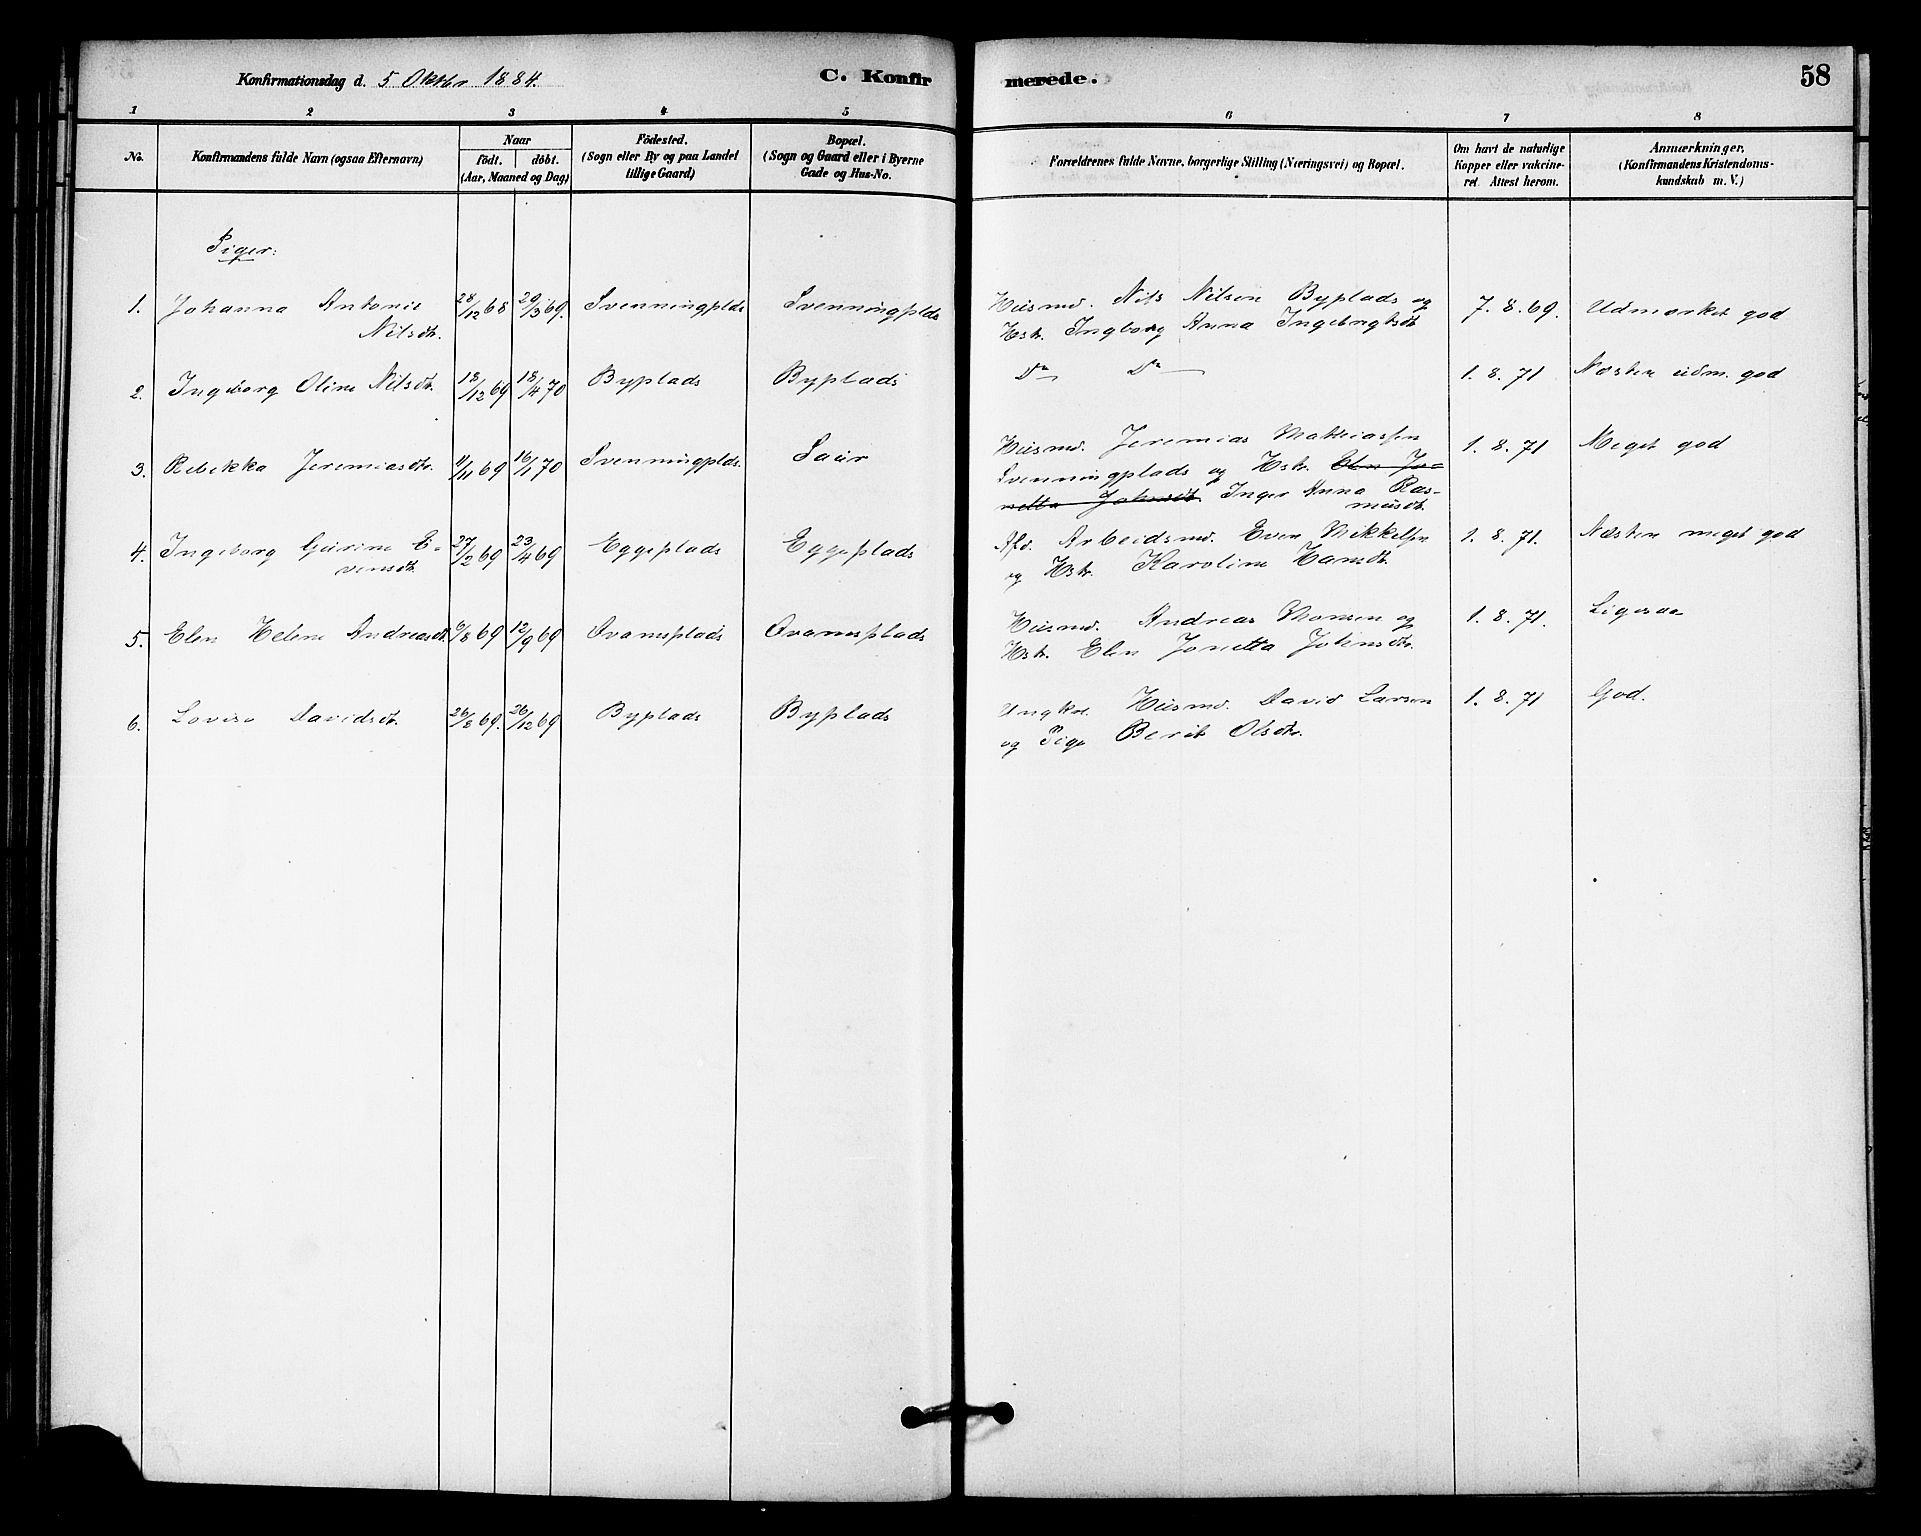 Konfirmationsdag d. 5 Oktbr 1884.
C. Konfirmerede.
58
1 2 3 4 5 6 7 8
No.
Konfirmandens fulde Navn (ogsaa Efternavn)
Naar
födt. döbt.
(Aar, Maaned og Dag)
Födested.
(Sogn eller By og paa Landet
tillige Gaard)
Bopæl.
(Sogn og Gaard eller i Byerne
Gade og Hus-No.
Forældrenes fulde Navne, borgerlige Stilling (Næringsvei) og Bopæl.
Om havt de naturlige
Kopper eller vakcine-
ret. Attest herom.
Anmærkninger,
(Konfirmandens Kristendoms-
kundskab m. V.)
Piger:
1. Johanna Antonie 28/12 68 29/3 69. Svenningplds Svenningplds Husmd. Nils Nilsen Byplads og 7. 8. 69. Udmærket god
Nilsdtr. Hstr. Ingborg Anna Ingebrigtsdtr
2. Ingeborg Oline Nilsdtr. 18/12 69 18/4 70 Byplads Byplads Do Do 1. 8. 71 Næsten udm. god
3. Rebekka Jeremiasdtr. 11/11 69 16/1 70 Svenningplds. Saur Husmd. Jeremias Mathiassen 1. 8. 71 Meget god
Svenningplads og Hstr. Elen Jo-
netta Johnsdtr. Inger Anna Ras-
musdtr.
4. Ingeborg Gurine E- 27/2 69 23/4 69 Eggeplads Eggeplads Afd. Arbeidsmd. Even Mikkelsen 1. 8. 71. Næsten meget god
vensdtr. og Hstr. Karoline Hansdtr.
5. Elen Helene Andreasdtr. 6/8 69 12/9 69 Ovamsplads Ovamsplads Husmd. Andreas Monsen og 1. 8. 71. Ligesaa
Hstr. Elen Jonetta Johnsdtr.
6. Lovise Davidsdtr. 26/8 69. 26/12 69 Byplads Byplads Ungkrl. Husmd. David Larsen 1. 8. 71 God.
og Pige Berit Olsdtr.